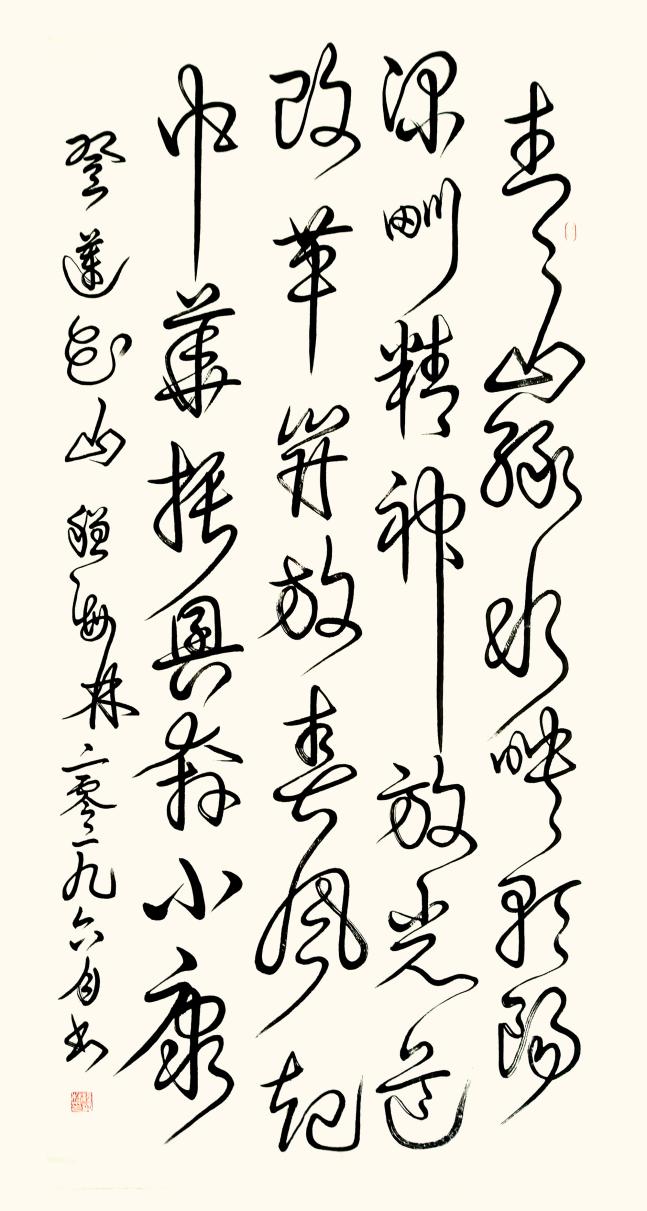 青山绿水映朝阳
深圳精神放光芒
改革开放春风起
中華振興奔小康
登蓮花山 海林二零一九六月书